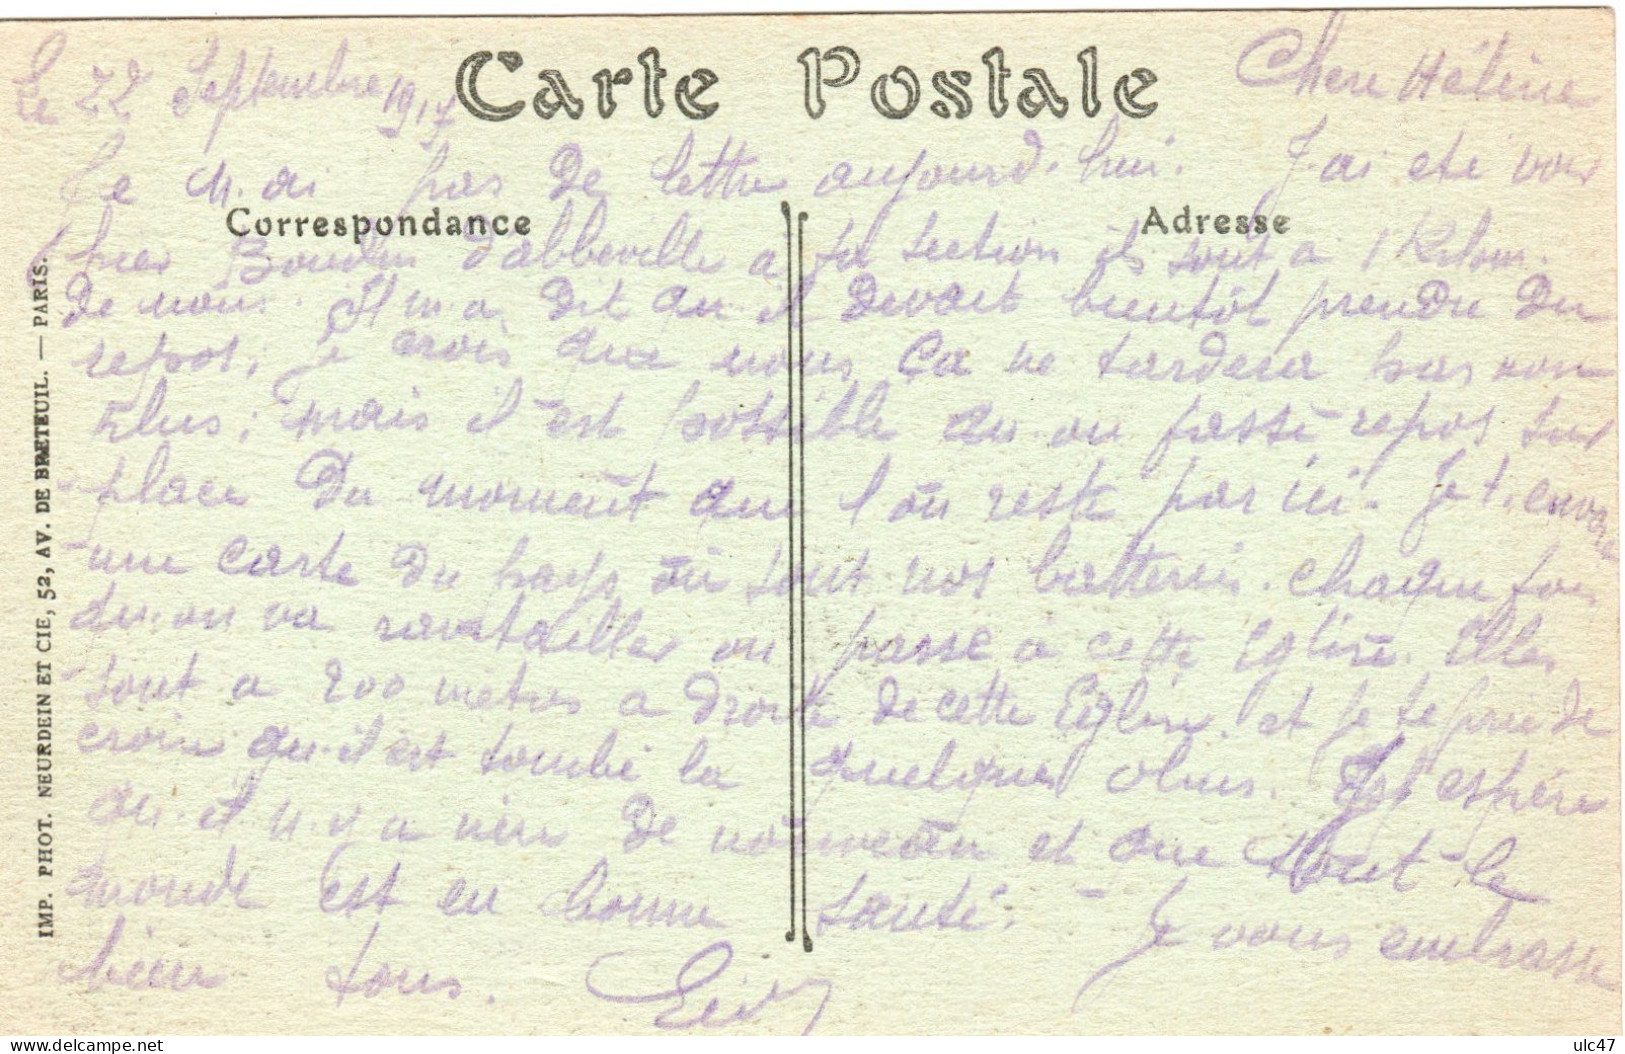 Carte Postale
Le 22 Septembre 1917
Chere Hélène
Je n.ai pas de lettre aujourd.hui. J.ai eté voir
Correspondance
Adresse
hier Boudin d'abbeville a sa section ils sont a 1 Kilom.
de nous. Il m.a dit qu il devait bientôt prendre du
repos, je crois que nous ça ne tardera pas non
plus; mais il est possible qu.on passe repos sur
place du moment que l on reste par ici. Je t.envoie
une carte du pays où sont nos batteries. chaque fois
qu.on va ravitailler on passe à cette Eglise. Elles
sont a 200 metres a droite de cette Eglise. et je te prie de
croire qu.il est tombé la quelques obus. J espère
qu.il n.y a rien de nouveau et que tout le
monde est en bonne santé. Je vous embrasse
bien tous.
IMP. PHOT. NEURDEIN ET CIE, 52, AV. DE BRETEUIL. — PARIS.
ulc47